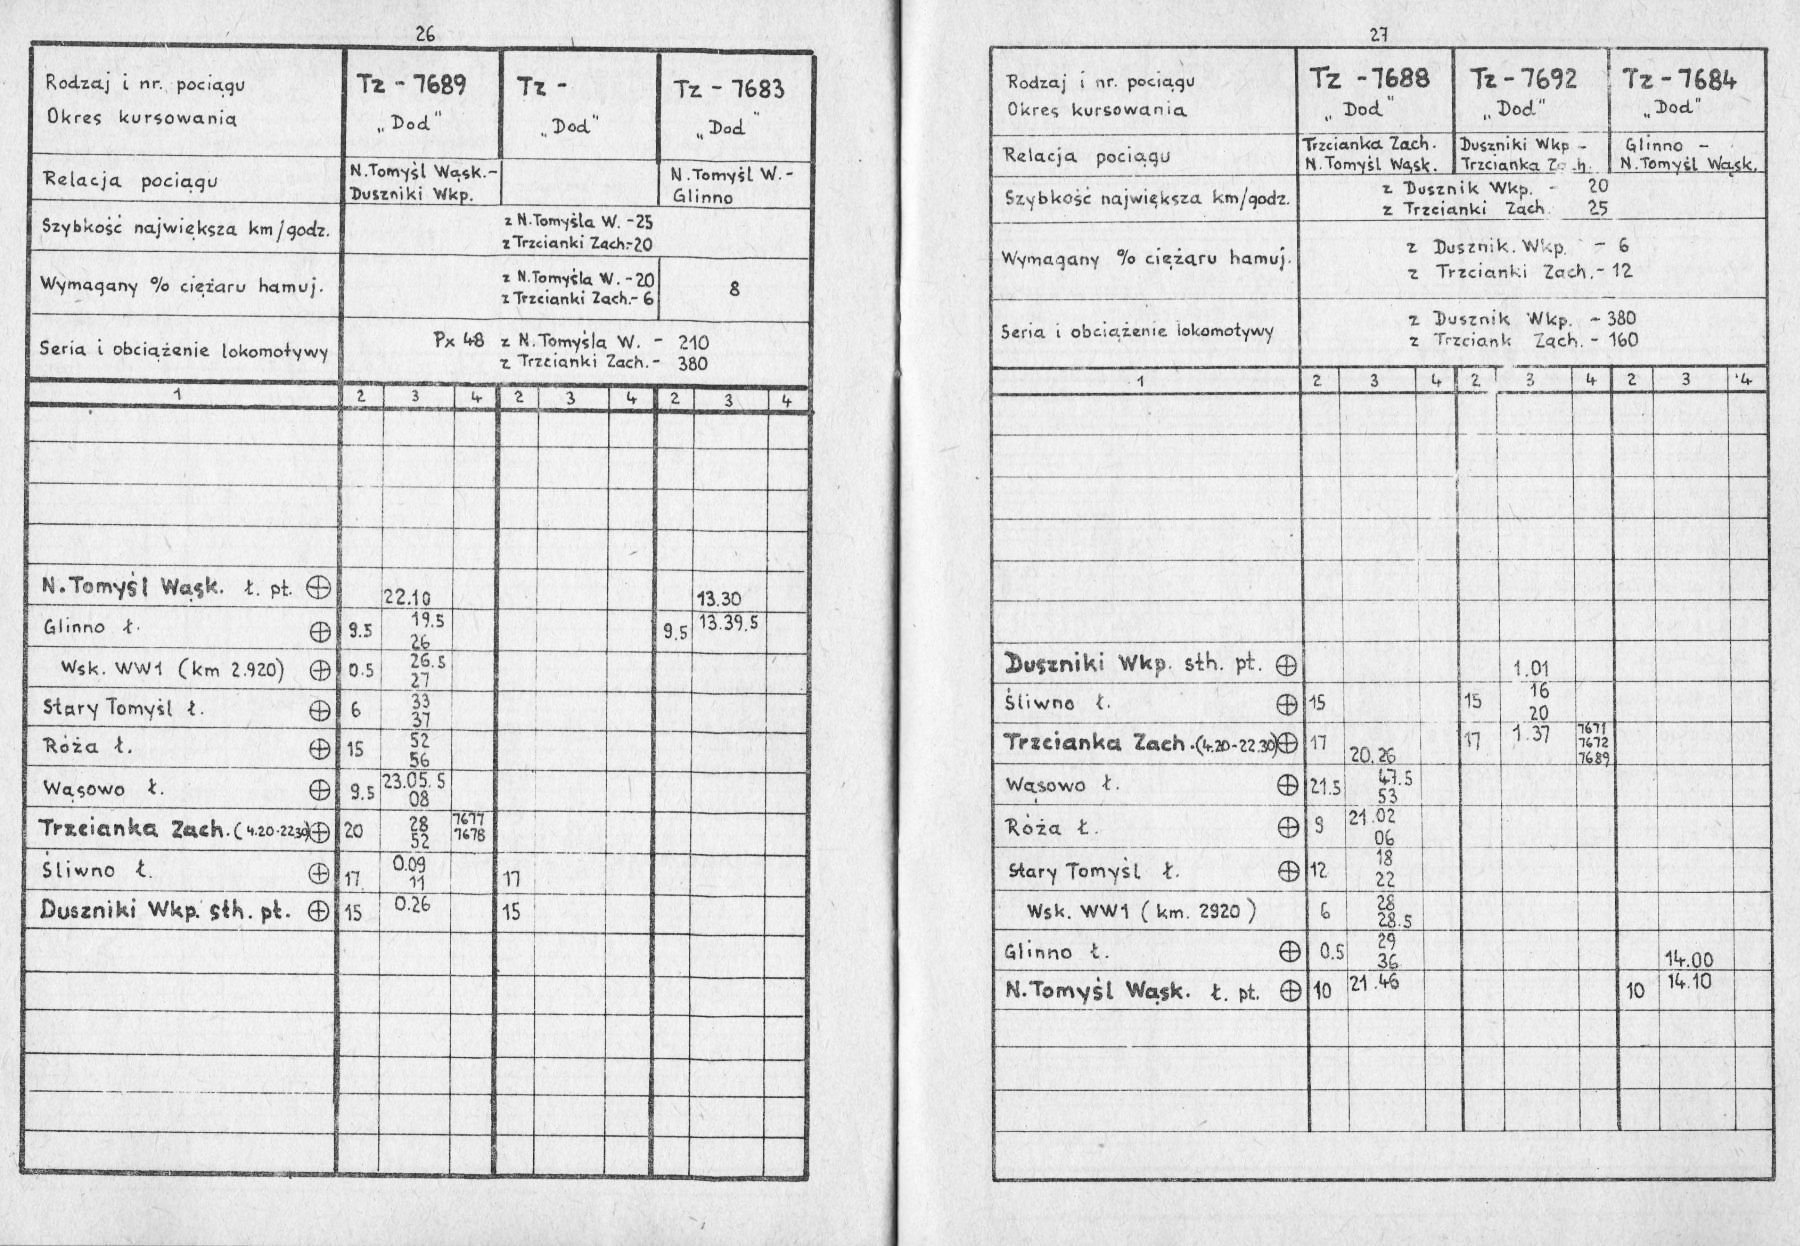 26
Rodzaj i nr. pociągu Tz - 7689 Tz - Tz - 7683
Okres kursowania „Dod" „Dod" „Dod"
Relacja pociągu N.Tomyśl Wąsk.- N.Tomyśl W.-
Duszniki Wkp. Glinno
Szybkość największa km/godz. z N.Tomyśla W. -25
z Trzcianki Zach.-20
Wymagany % ciężaru hamuj. z N.Tomyśla W. -20 8
z Trzcianki Zach.- 6
Seria i obciążenie lokomotywy Px 48 z N. Tomyśla W. - 210
z Trzcianki Zach. - 380
1 2 3 4 2 3 4 2 3 4
N.Tomyśl Wąsk. ł. pt. ⊕ 22.10 13.30
Glinno ł. ⊕ 9.5 19.5 9.5 13.39.5
26
Wsk. WW1 (km 2.920) ⊕ 0.5 26.5
27
Stary Tomyśl ł. ⊕ 6 33
37
Róża ł. ⊕ 15 52
56
Wąsowo ł. ⊕ 9.5 23.05.5
08
Trzcianka Zach. (4.20-22.30) ⊕ 20 28 7677
52 7678
Śliwno ł. ⊕ 17 0.09 17
11
Duszniki Wkp. sth. pt. ⊕ 15 0.26 15
27
Rodzaj i nr. pociągu Tz - 7688 Tz - 7692 Tz - 7684
Okres kursowania „Dod" „Dod" „Dod"
Relacja pociągu Trzcianka Zach. Duszniki Wkp - Glinno -
N.Tomyśl Wąsk. Trzcianka Zach. N.Tomyśl Wąsk.
Szybkość największa km/godz. z Dusznik Wkp. - 20
z Trzcianki Zach. 25
Wymagany % ciężaru hamuj. z Dusznik. Wkp. - 6
z Trzcianki Zach.- 12
Seria i obciążenie lokomotywy z Dusznik Wkp. - 380
z Trzciank Zach. - 160
1 2 3 4 2 3 4 2 3 4
Duszniki Wkp. sth. pt. ⊕ 1.01
Śliwno ł. ⊕ 15 15 16
20
Trzcianka Zach.(4.20-22.30) ⊕ 17 20.26 17 1.37 7671
7672
7689
Wąsowo ł. ⊕ 21.5 47.5
53
Róża ł. ⊕ 9 21.02
06
Stary Tomyśl ł. ⊕ 12 18
22
Wsk. WW1 (km. 2920) 6 28
28.5
Glinno ł. ⊕ 0.5 29 14.00
36
N.Tomyśl Wąsk. ł. pt. ⊕ 10 21.46 10 14.10